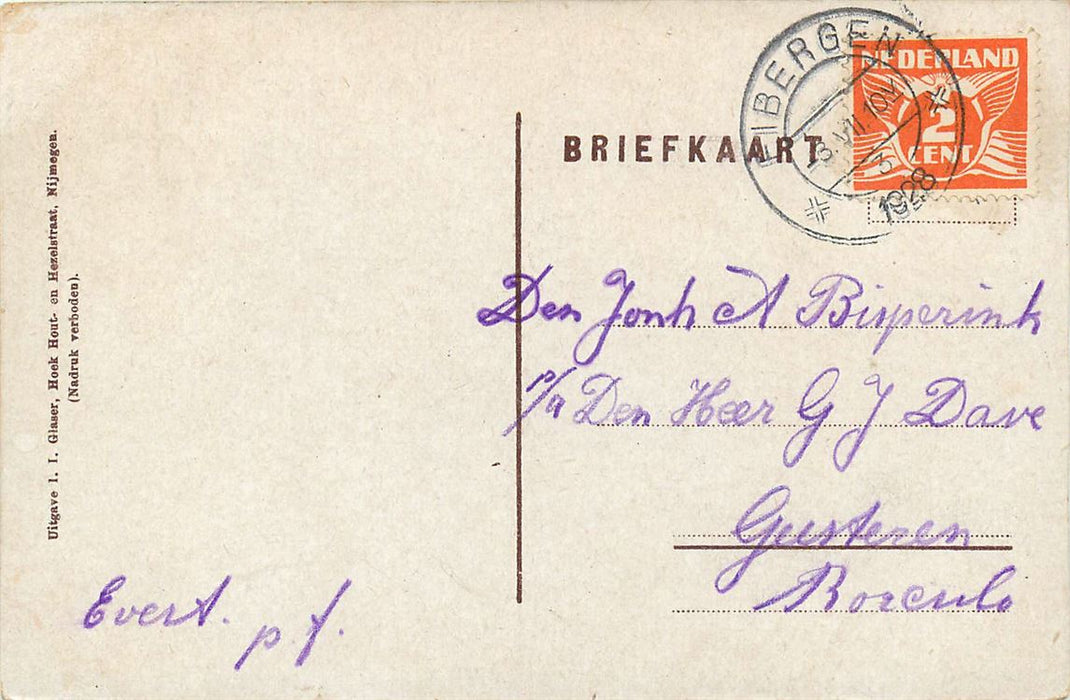 EIBERGEN
8.VII.10V
3
1928
NEDERLAND
2
CENT
BRIEFKAART
Den Jonh A Bisperink
p/a Den Heer G J Dave
Geesteren
Borculo
Evert.
p.f.
Uitgave I. I. Glaser, Hoek Hout- en Hezelstraat, Nijmegen.
(Nadruk verboden).